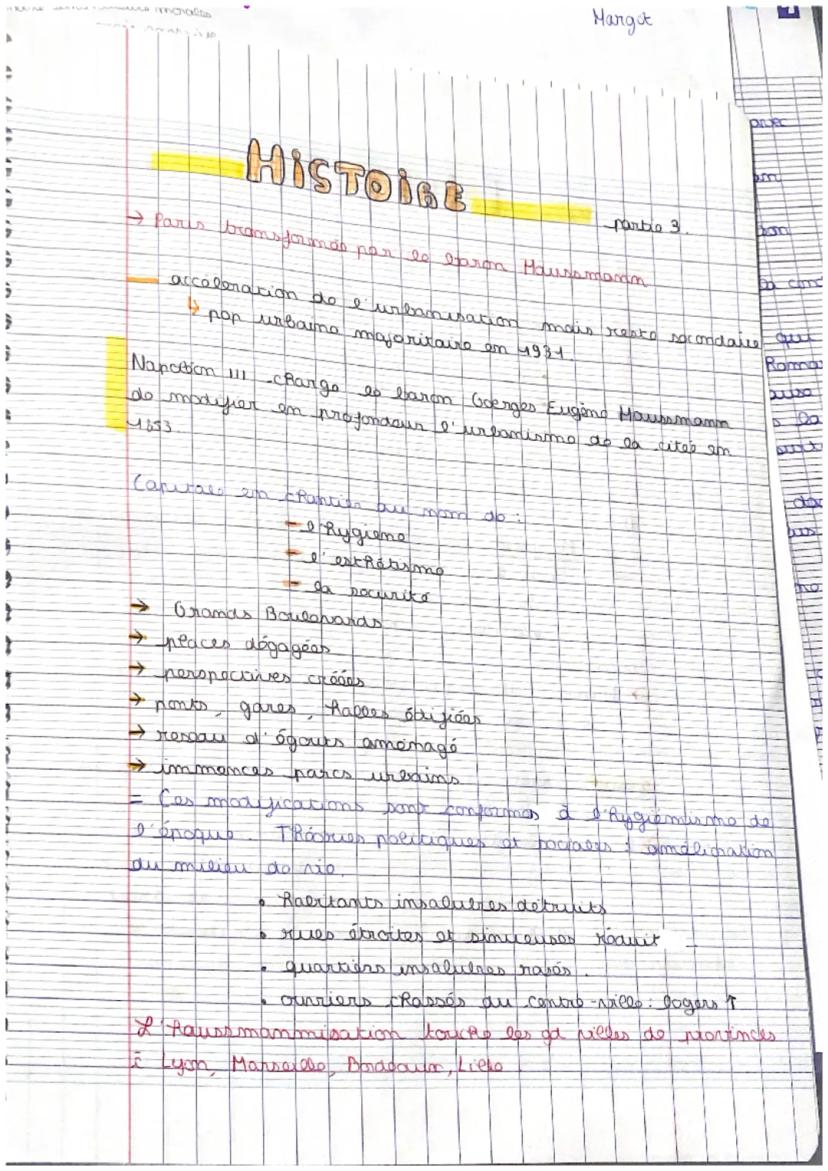 Margot
HiSTOiRE
partie 3.
→ Paris transformée par le baron Haussmann
— accélération de l'urbanisation mais reste secondaire
↳ pop urbaine majoritaire en 1931.
Napoléon III charge le baron Goerges Eugène Haussmann
de modifier en profondeur l'urbanisme de la citée en
1853
Capitale en chantier au nom de :
- l'hygiène
- l'esthétisme
- la sécurité
→ Grands Boulevards
→ places dégagées
→ perspectives créées
→ ponts, gares, halles érigiées
→ réseau d'égouts aménagé
→ immences parcs urbains
= Ces modifications sont conformes à l'hygiénisme de
l'époque. Théories politiques et sociales : amélioration
du milieu de vie.
• habitants insalubres détruits
• rues étroites et sinueuses réduit
• quartiers insalubres rasés.
• ouvriers chassés du centre-ville : loyers ↑
L'haussmannisation touche les gd villes de provinces
ē Lyon, Marseille, Bordeaux, Lille
avec
qui
Romai
la